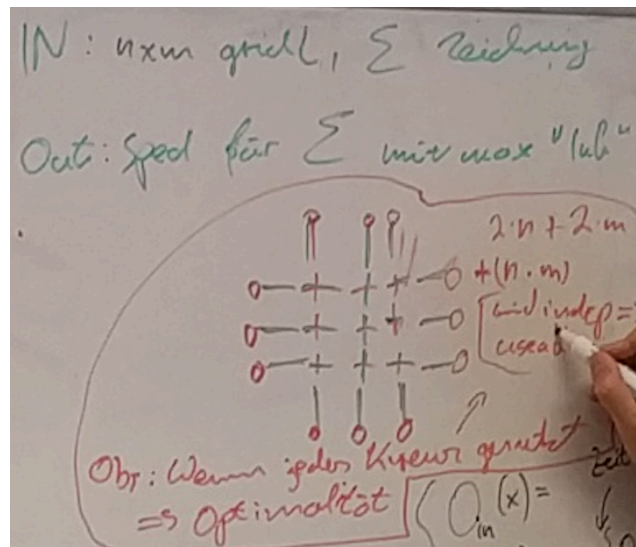 IN: nxm gridl, Σ Zeichnung
Out: Sped für Σ mit max "luh"
2·n + 2·m
+(n·m)
indep =
Obs: Wenn jedes Kreuz genutzt
=> Optimalität
O_in(x) =
Zeit